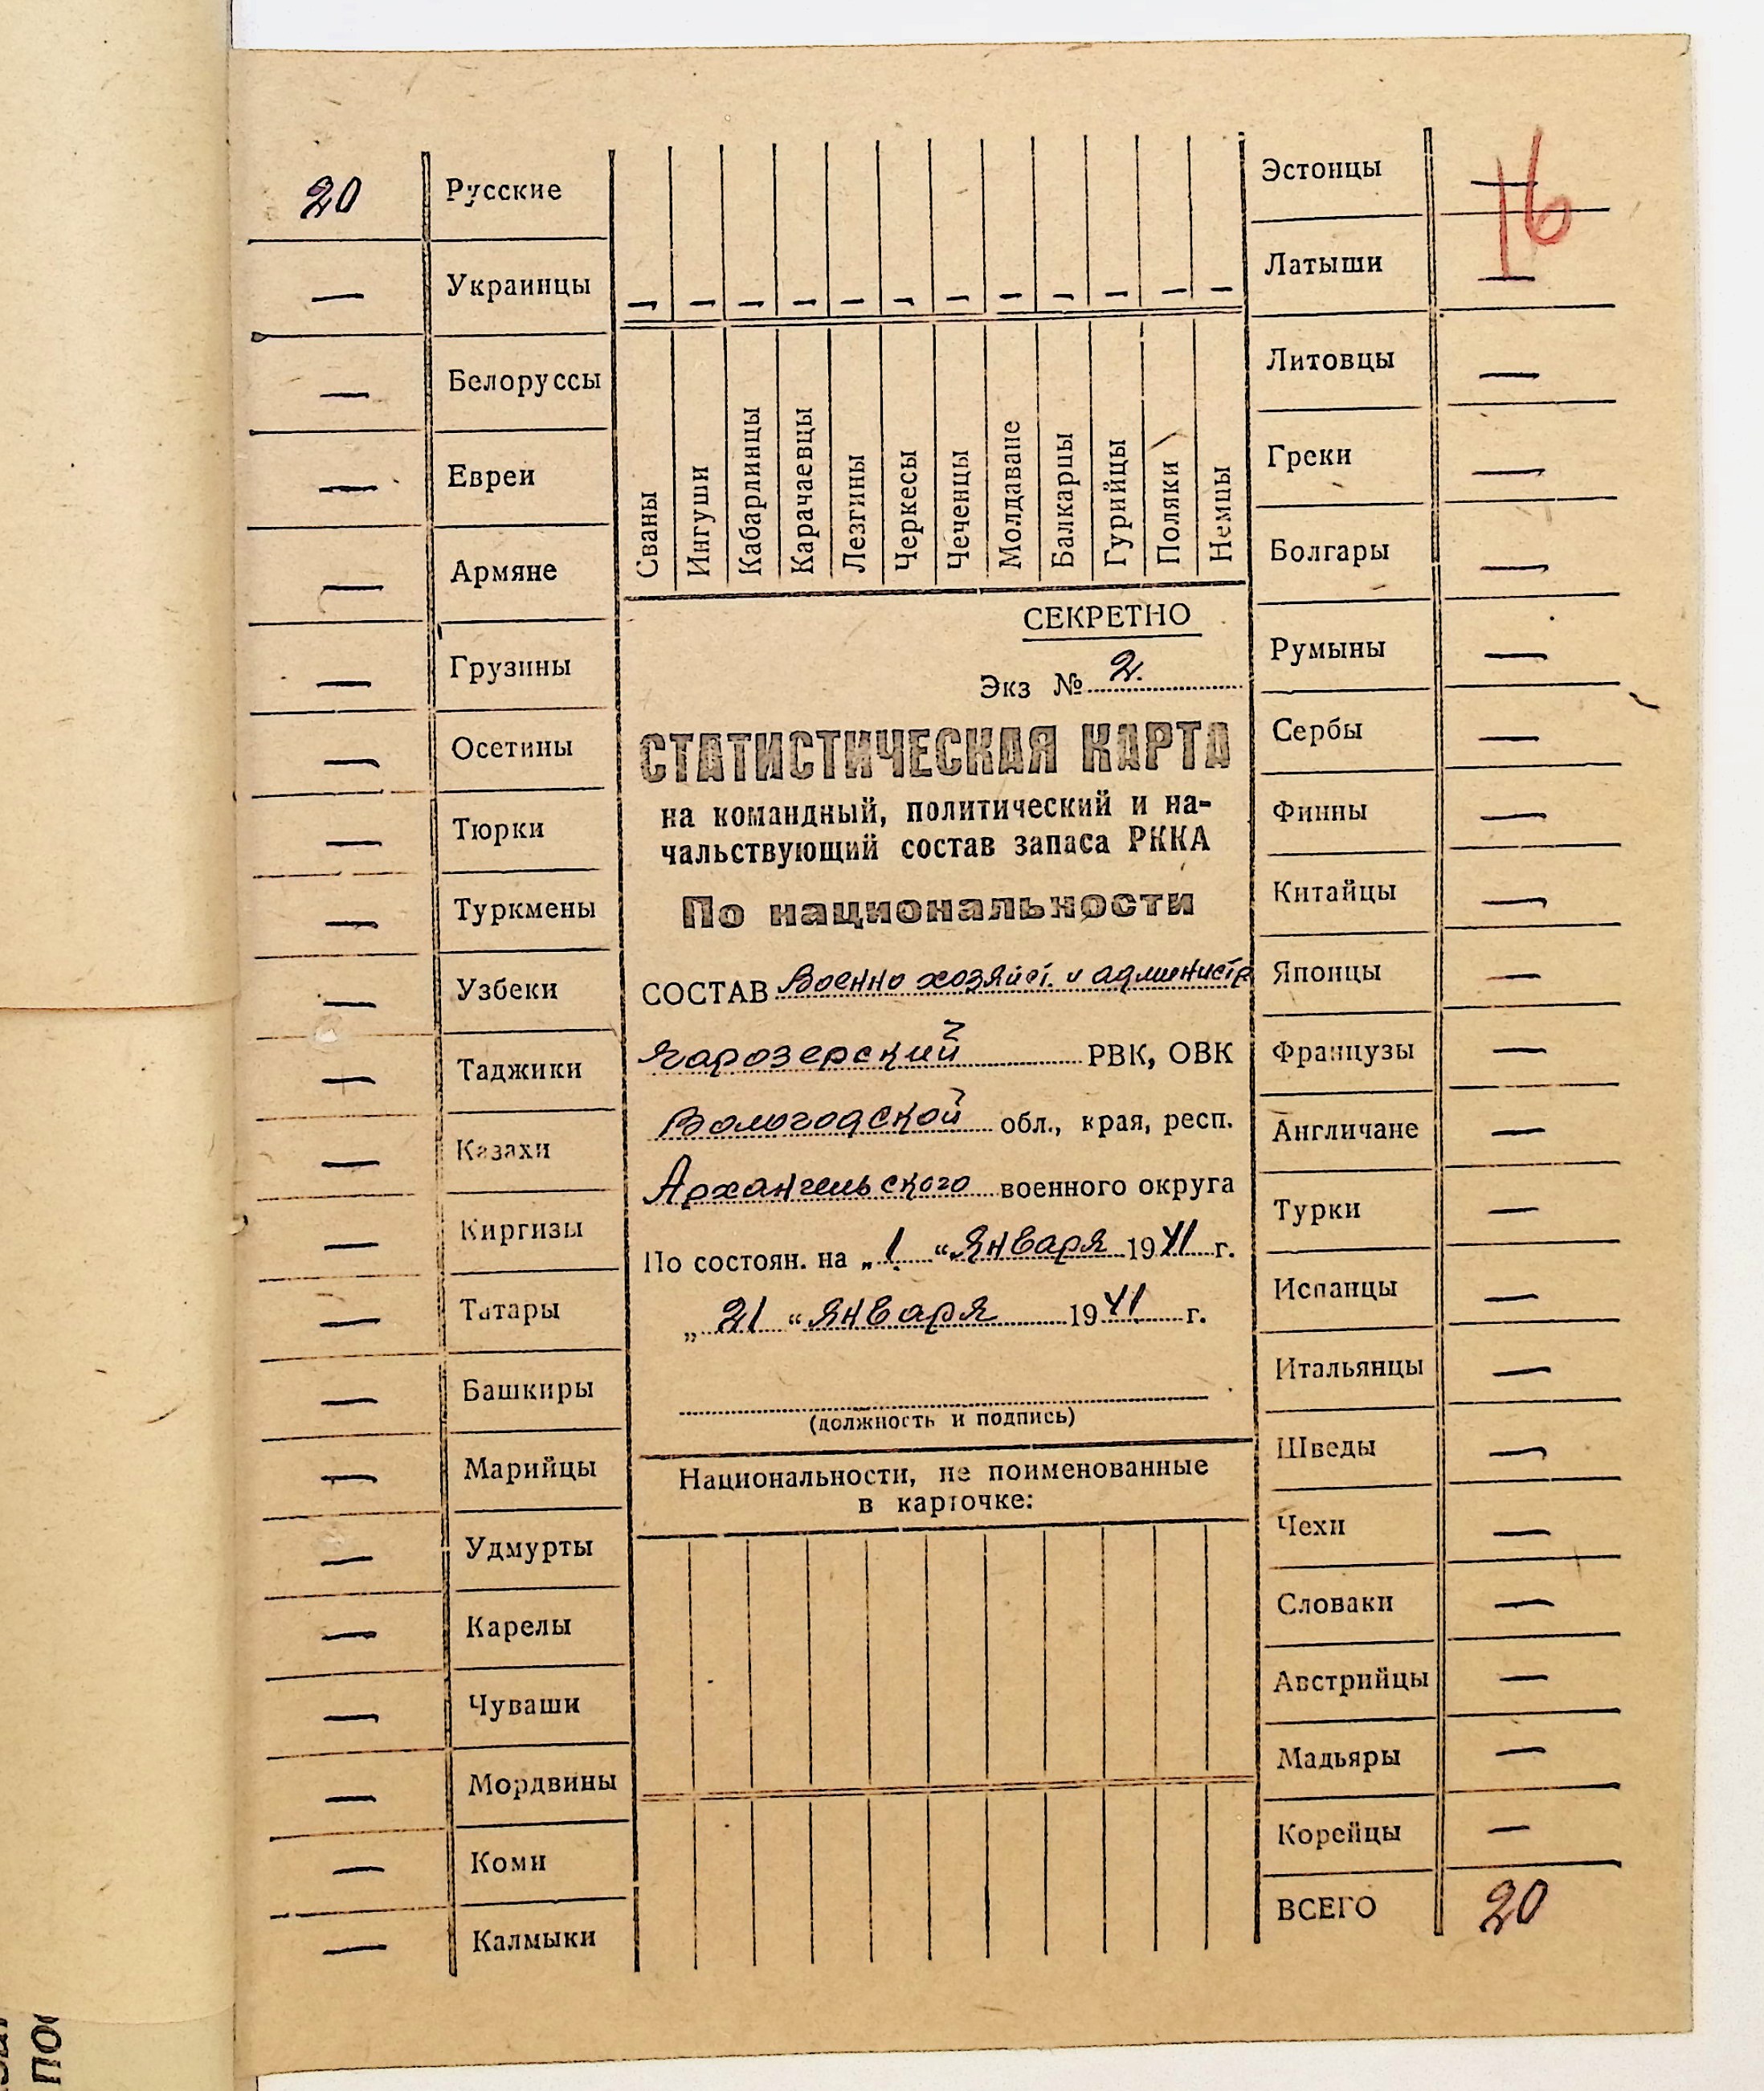 20 Русские
— Украинцы
— Белоруссы
— Евреи
— Армяне
— Грузины
— Осетины
— Тюрки
— Туркмены
— Узбеки
— Таджики
— Казахи
— Киргизы
— Татары
— Башкиры
— Марийцы
— Удмурты
— Карелы
— Чуваши
— Мордвины
— Коми
— Калмыки
— — — — — — — — — — — —
Сваны
Ингуши
Кабардинцы
Карачаевцы
Лезгины
Черкесы
Чеченцы
Молдаване
Балкарцы
Гурийцы
Поляки
Немцы
СЕКРЕТНО
Экз № 2.
СТАТИСТИЧЕСКАЯ КАРТА
на командный, политический и на-
чальствующий состав запаса РККА
По национальности
СОСТАВ Военно хозяйст. и администр
Чарозерский РВК, ОВК
Вологодской обл., края, респ.
Архангельского военного округа
По состоян. на „1“ Января 1941 г.
„21“ Января 1941 г.
(должность и подпись)
Национальности, не поименованные
в карточке:
Эстонцы —
Латыши —
Литовцы —
Греки —
Болгары —
Румыны —
Сербы —
Финны —
Китайцы —
Японцы —
Французы —
Англичане —
Турки —
Испанцы —
Итальянцы —
Шведы —
Чехи —
Словаки —
Австрийцы —
Мадьяры —
Корейцы —
ВСЕГО 20
16
по